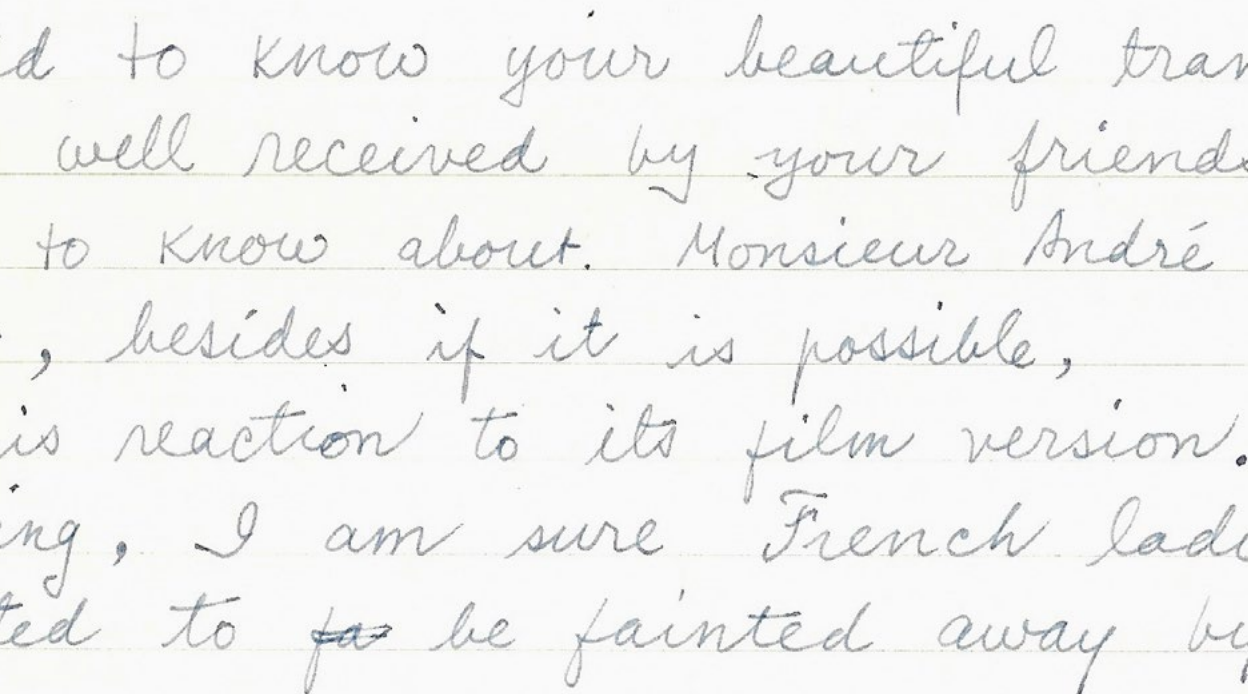 d to know your beautiful tran
well received by your friends
to know about. Monsieur André
, besides if it is possible,
is reaction to its film version.
ing, I am sure French ladi
ted to fa be fainted away by